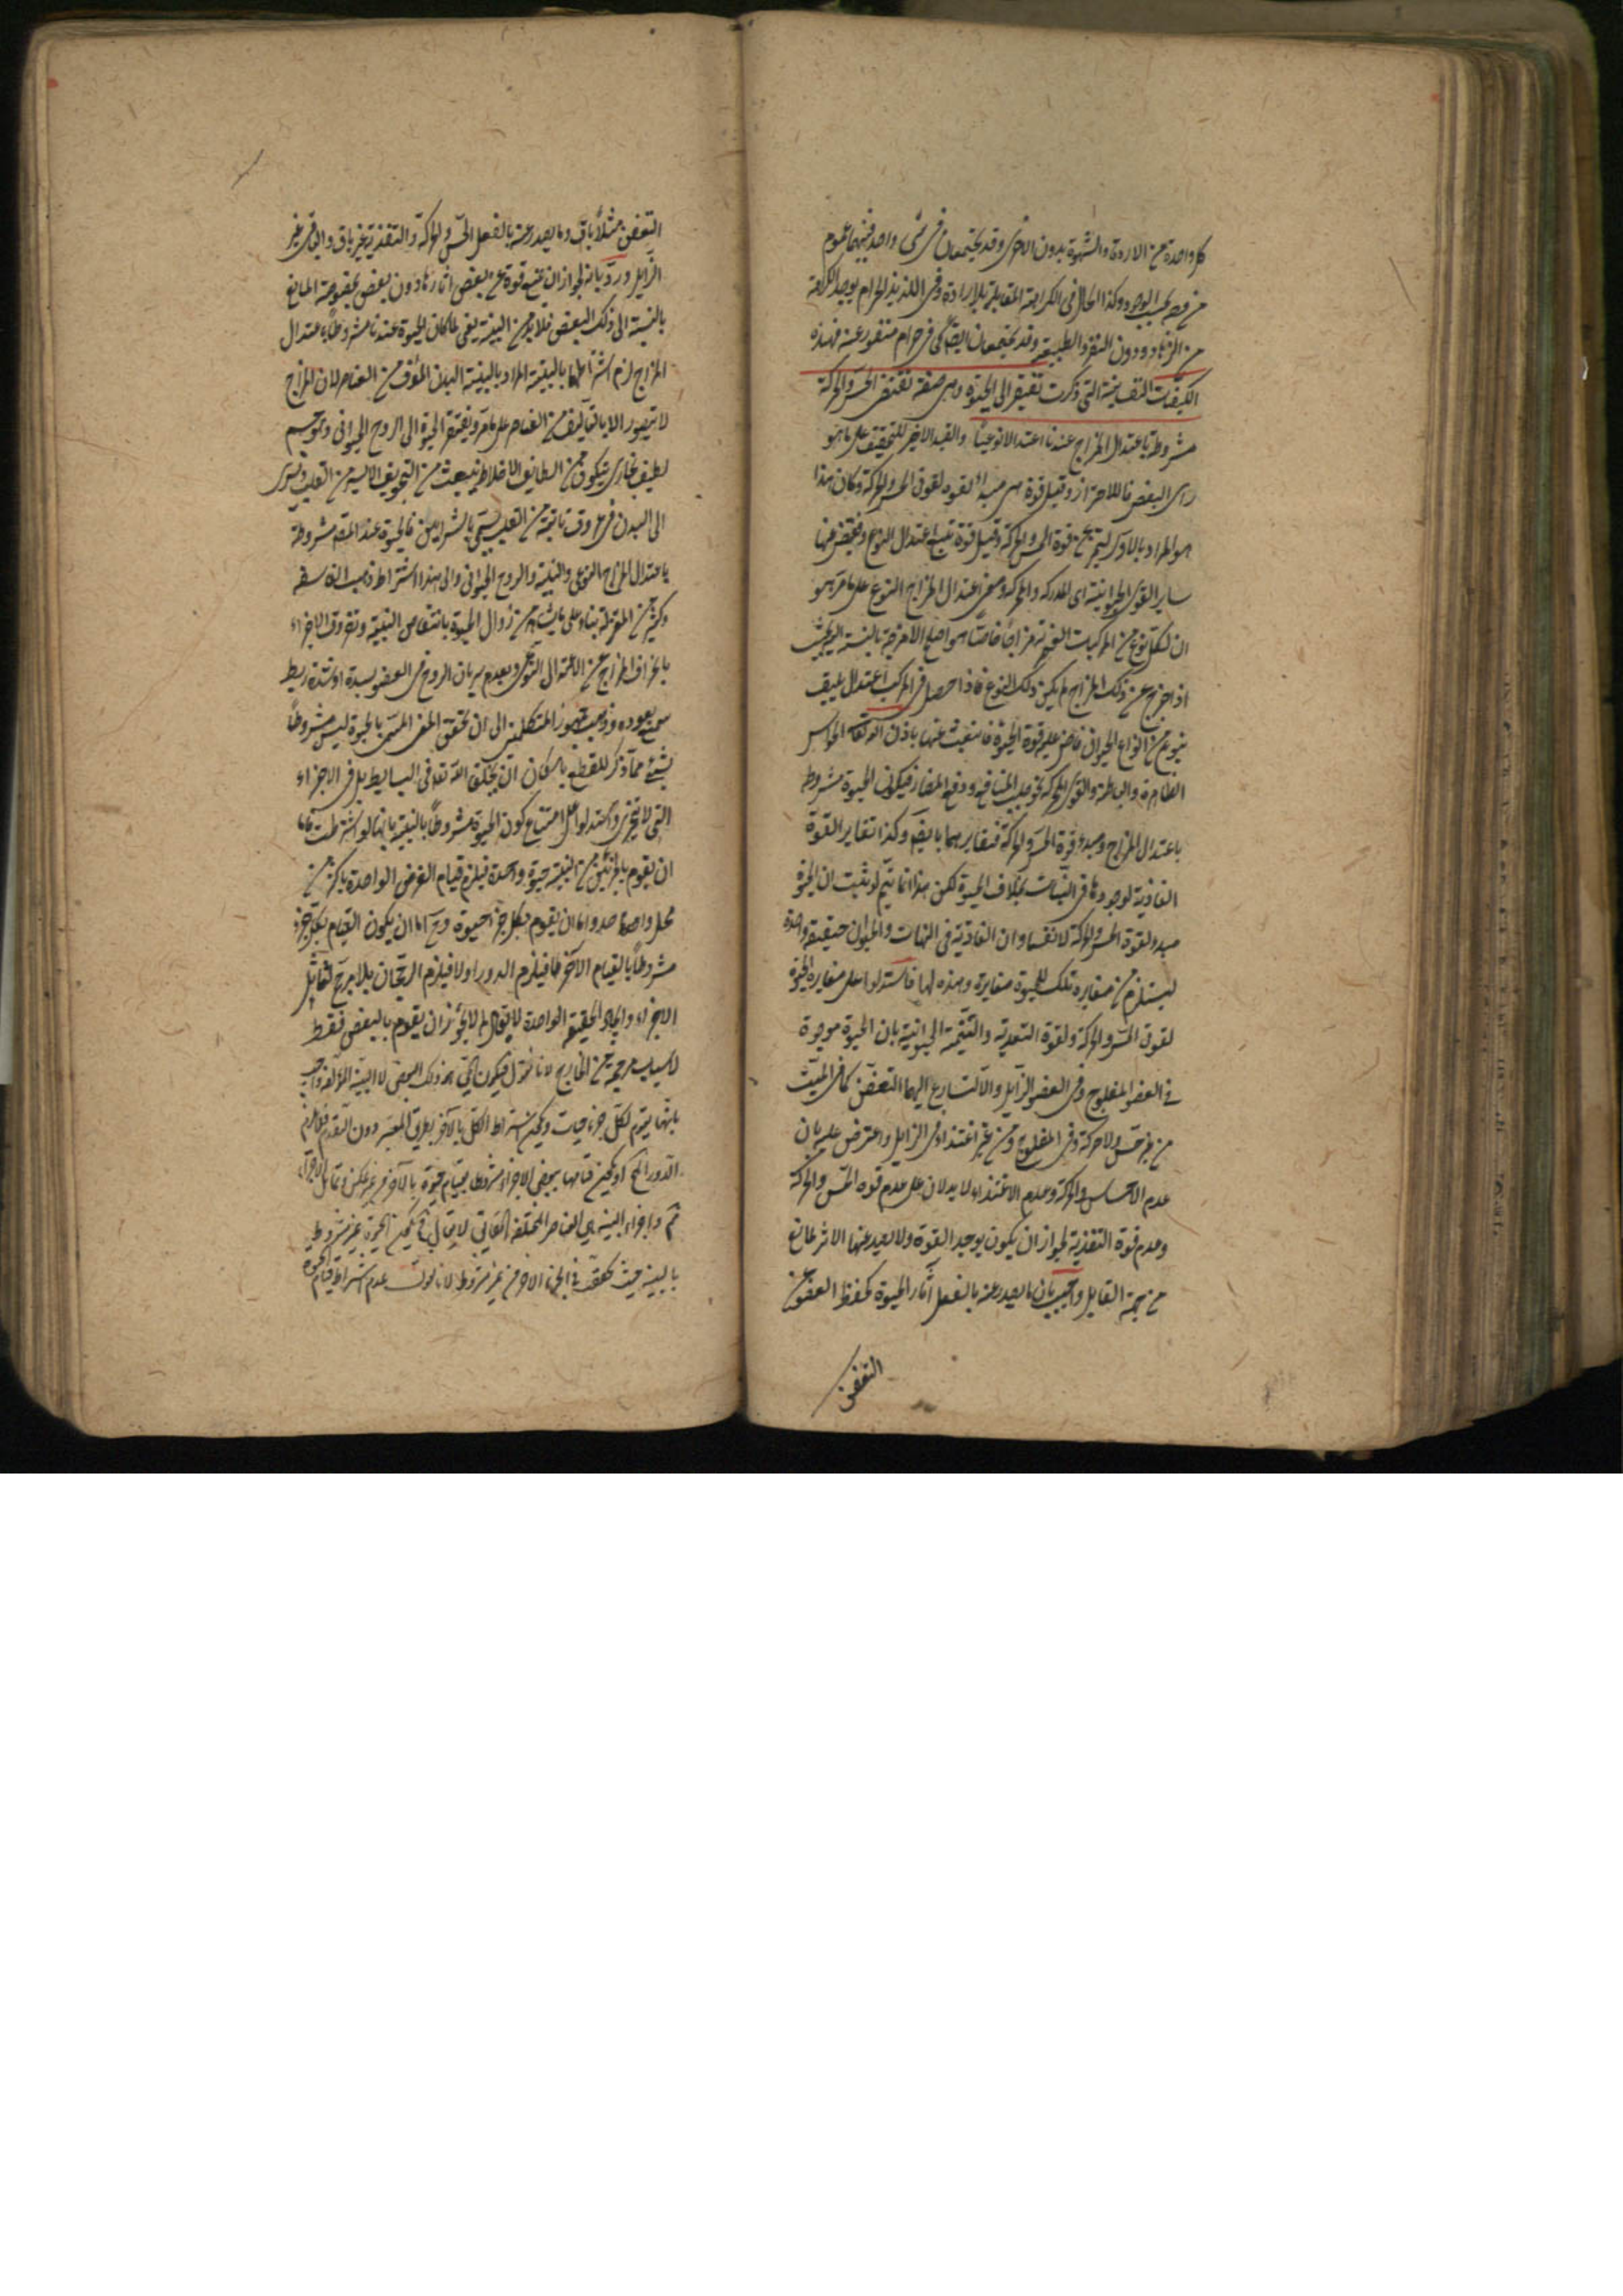 كل واحدة من الارادة والشهوة بدون الاخرى وقد يجتمعان فى شى واحد فبينهما عموم
من وجه بحسب الوجود وكذا الحال فى الكراهة المقابلة للارادة وفى اللذيذ الحرام يوجد الكراهة
من الزهاد دون النفرة الطبيعية وقد يجتمعان ايضا كما فى حرام منفور عنه فهذه
الكيفيات النفسانية التى ذكرت تفتقر الى الحيوة وهى صفة تقتضى الحس والحركة
مشروطة باعتدال المزاج عندنا اعتدالا نوعيا والقيد الاخير للتحقيق على ما هو
راى البعض لا للاحتراز وقيل قوة هى مبدا لقوة لقوى الحس والحركة وكان هذا
هو المراد بالاول ليتميز عن قوة الحس والحركة وقيل قوة تتبع اعتدال النوع وتفيض منها
ساير القوى الحيوانية اى المدركه والمحركه ومعنى اعتدال المزاج النوعى على ما مر هو
ان لكل نوع من المركبات العنصرية مزاجا خاصا هو اصلح الامزجة بالنسبة اليه بحيث
اذا خرج عن ذلك المزاج لم يكن ذلك النوع فاذا حصل فى المركب اعتدال يليق
بنوع من انواع الحيوان فاض عليه قوة الحيوة فانبعثت عنها باذن الله تعالى الحواس
الظاهرة والباطنة والقوى المحركة نحو جلب المنافع ودفع المضار فيكون الحيوة مشروطة
باعتدال المزاج ومبدء قوة الحس والحركة فتغايرهما بالضرورة وكذا تغاير القوة
الغاذية لوجودها فى النبات بخلاف الحيوة لكن هذا انما يتم لو ثبت ان الحيوة
مبدء لقوة الحس والحركة لا نفسها وان الغاذية فى النبات والحيوان حقيقة واحدة
ليستلزم من مغايرة تلك للحيوة مغايرة هذه لها فاستدلوا على مغايرة الحيوة
لقوى الحس والحركة ولقوة التغذية والتنمية الحيوانية بان الحيوة موجودة
فى العضو المفلوج وفى العضو الزايل والا لتسارع اليهما التعفن كما فى الميت
من غير حس ولا حركة وفى المفلوج ومن غير اغتذاء فى الزايل واعترض عليه بان
عدم الاحساس والحركة وعدم الاغتذاء لا يدلان على عدم قوة الحس والحركة
وعدم قوة التغذية لجواز ان يكون يوجد القوة ولا يصدر عنها الاثر لمانع
من جهة القابل واجيب بان ما يصدر عنه بالفعل آثار الحيوة كحفظ العضو عن
التعفن
التعفن مثلا باق وما يصدر عنه بالفعل الحس والحركة والتغذية غير باق والباقى غير
الزايل ورد بانه لجواز ان يمنع قوة عن بعض آثارها دون بعض لخصوصية المانع
بالنسبة الى ذلك البعض فلا بد من البنية يعنى لما كان الحيوة عندنا مشروطا باعتدال
المزاج لزم اشتراطها بالبنية المراد بالبنية البدن المؤلف من العناصر لان المزاج
لا يتصور الا بالتاليف من العناصر على ما مر ويفتقر الحيوة الى الروح الحيوانى وهو جسم
لطيف بخارى يتكون من لطايف الاخلاط ينبعث من التجويف الايسر من القلب ويسرى
الى البدن فى عروق نابتة من القلب يسمى بالشرايين فالحيوة عند المص مشروطة
باعتدال المزاج النوعى والبنية والروح الحيوانى والى هذا الاشتراط ذهب الفلاسفة
وكثير من المعتزلة بناء على ما يشاهد من زوال الحيوة بانتقاض البنية وتفرق الاجزاء
بانحراف المزاج عن الاعتدال النوعى وبعدم سريان الروح فى العضو بسدة او شدة ربط
يمنع نفوده وذهب جمهور المتكلمين الى ان تحقق المعنى المسمى بالحيوة ليس مشروطا
بشئ مما ذكر للقطع بامكان ان يخلق الله تعالى فى البسايط بل فى الاجزاء
التى لا تتجزى واستدلوا على امتناع كون الحيوة مشروطا بالبنية بانها لو اشترطت فاما
ان يقوم بالجزئين من البنية حيوة واحدة فيلزم قيام العرض الواحد باكثر من
محل واحد واما ان يقوم بكل جزء حيوة وح اما ان يكون القيام بكل جزء
مشروطا بالقيام الآخر فيلزم الدور او لا فيلزم الرجحان بلا مرجح لتماثل
الاجزاء واتحاد الحقيقة الواحدة لا يقال لم لا يجوز ان يقوم بالبعض فقط
لاسباب مرجحة من الخارج لانا نقول فيكون الحى هو ذلك البعض لا البنية المؤلفة واجيب
بانها يقوم لكل جزء حيات ويكون اشتراط الكل بالآخر بطريق المعية دون التقدم فلا يلزم
الدور المح او يكون قيامها ببعض الاجزاء مشروطا بقيام حيوة بالآخر من غير عكس وتماثل الاجزاء
ثم واجزاء البنية هى العناصر المختلفة الحقايق لا يقال فح يكون الحيوة غير مشروط
بالبنية حيث تحقق فى الجزء الآخر من غير مشروط لانا نقول عدم اشتراط قيام الحيوة